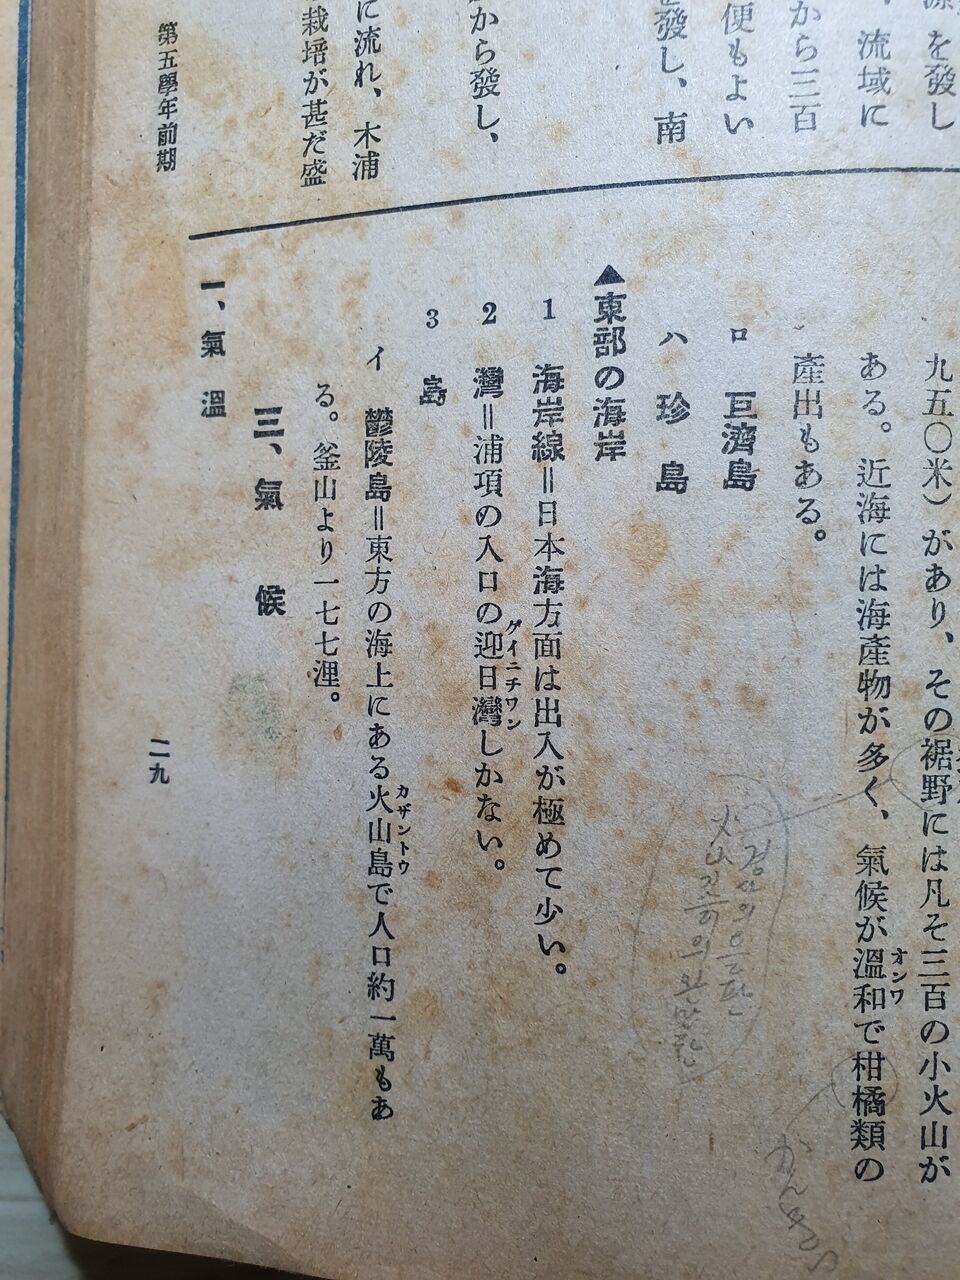 源を發し
流域に
から三百
便もよい
發し、南
から發し、
に流れ、木浦
栽培が甚だ盛
第五學年前期
九五〇米）があり、その裾野には凡そ三百の小火山が
ある。近海には海產物が多く、氣候が溫和で柑橘類の
オンワ
產出もある。
かんきつ
ロ 巨濟島
ハ 珍島
▲東部の海岸
1 海岸線＝日本海方面は出入が極めて少い。
2 灣＝浦項の入口の迎日灣しかない。
ゲイニチワン
3 島
イ 鬱陵島＝東方の海上にある火山島で人口約一萬もあ
カザントウ
る。釜山より一七七浬。
三、氣候
一、氣溫
二九